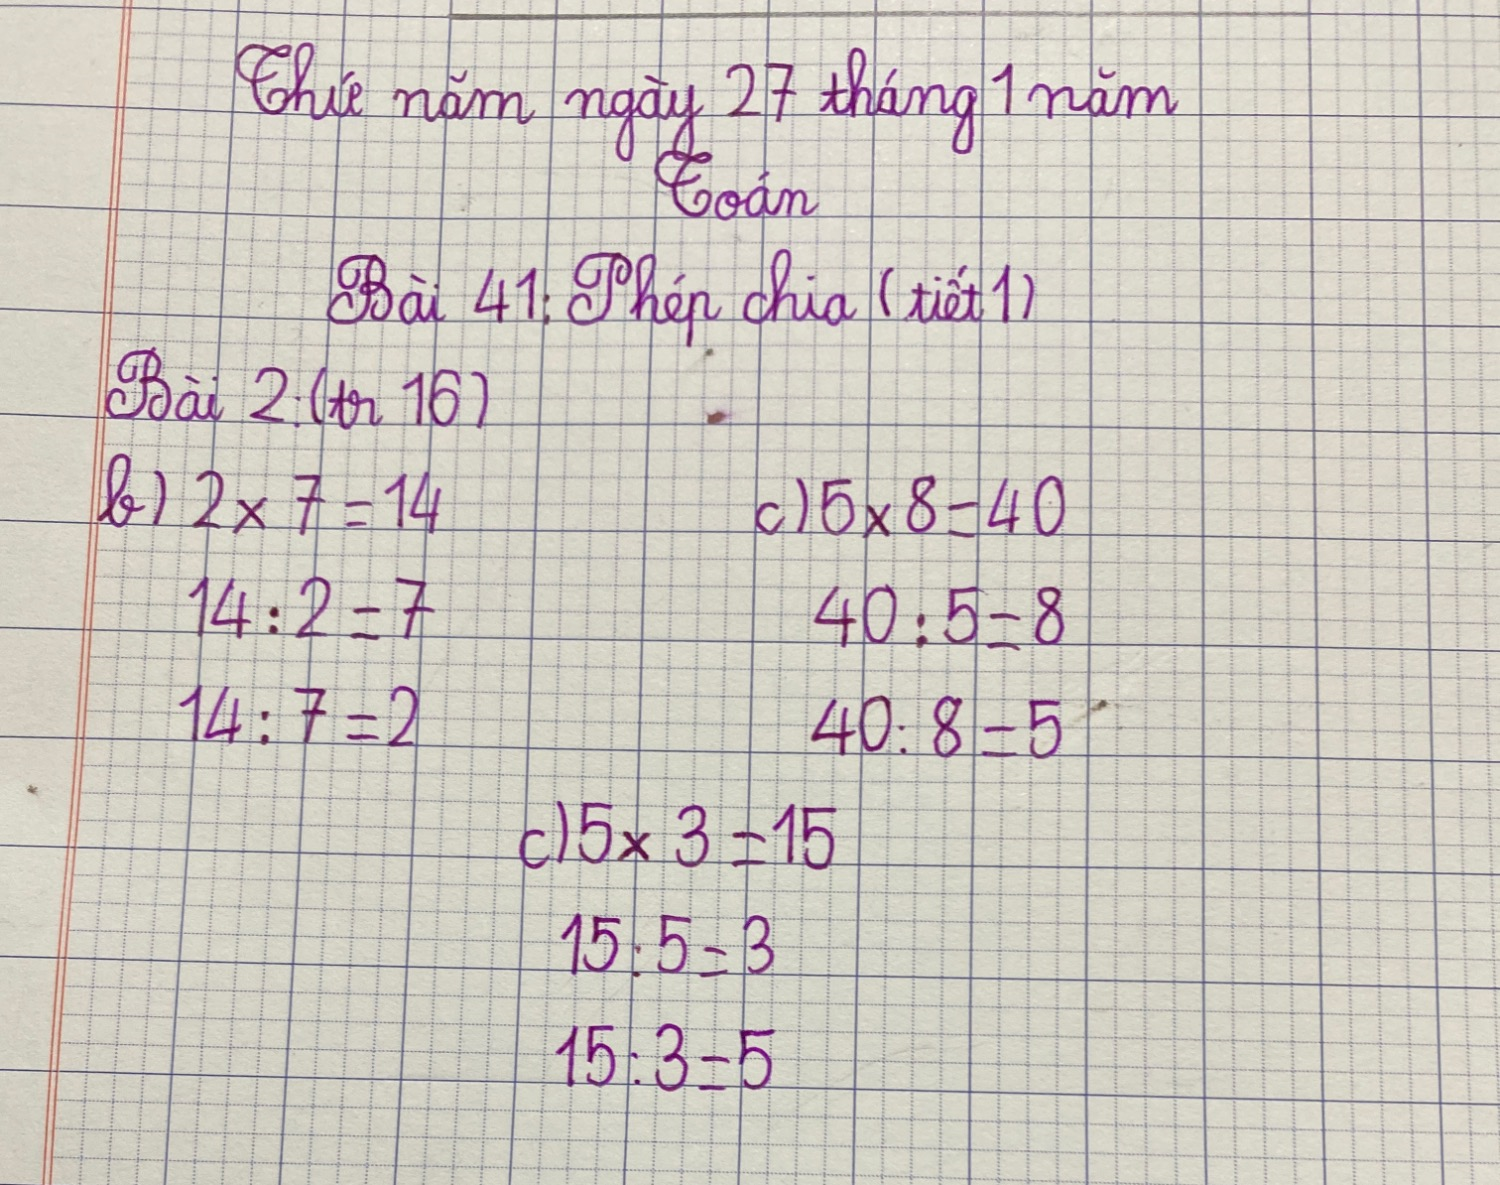 Thứ năm ngày 27 tháng 1 năm
Toán
Bài 41: Phép chia (tiết 1)
Bài 2: (tr 16)
b) 2 x 7 = 14
14 : 2 = 7
14 : 7 = 2
c) 5 x 8 = 40
40 : 5 = 8
40 : 8 = 5
c) 5 x 3 = 15
15 : 5 = 3
15 : 3 = 5